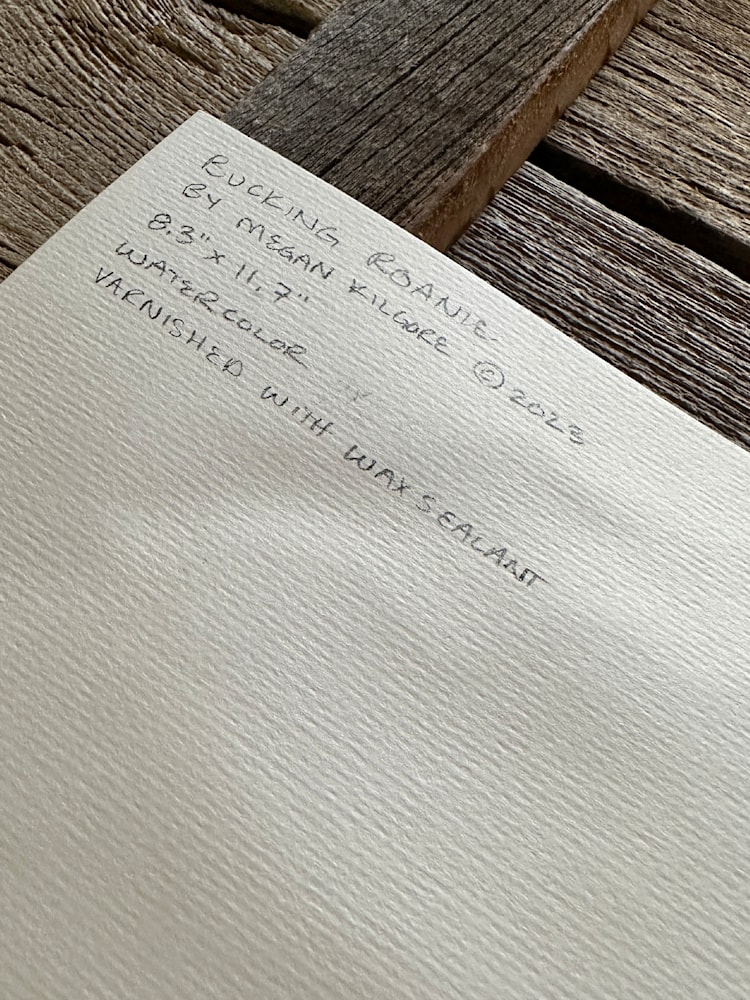 BUCKING ROANIE
BY MEGAN KILGORE © 2023
8.3" X 11.7"
WATERCOLOR
VARNISHED WITH WAX SEALANT